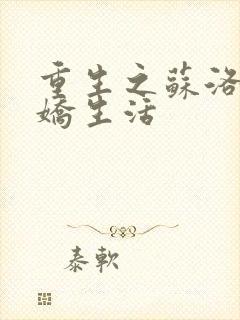 重生之蘇洛
嬌生活
泰軟